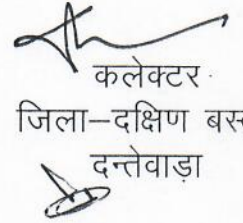 कलेक्टर
जिला–दक्षिण बस्
दन्तेवाड़ा